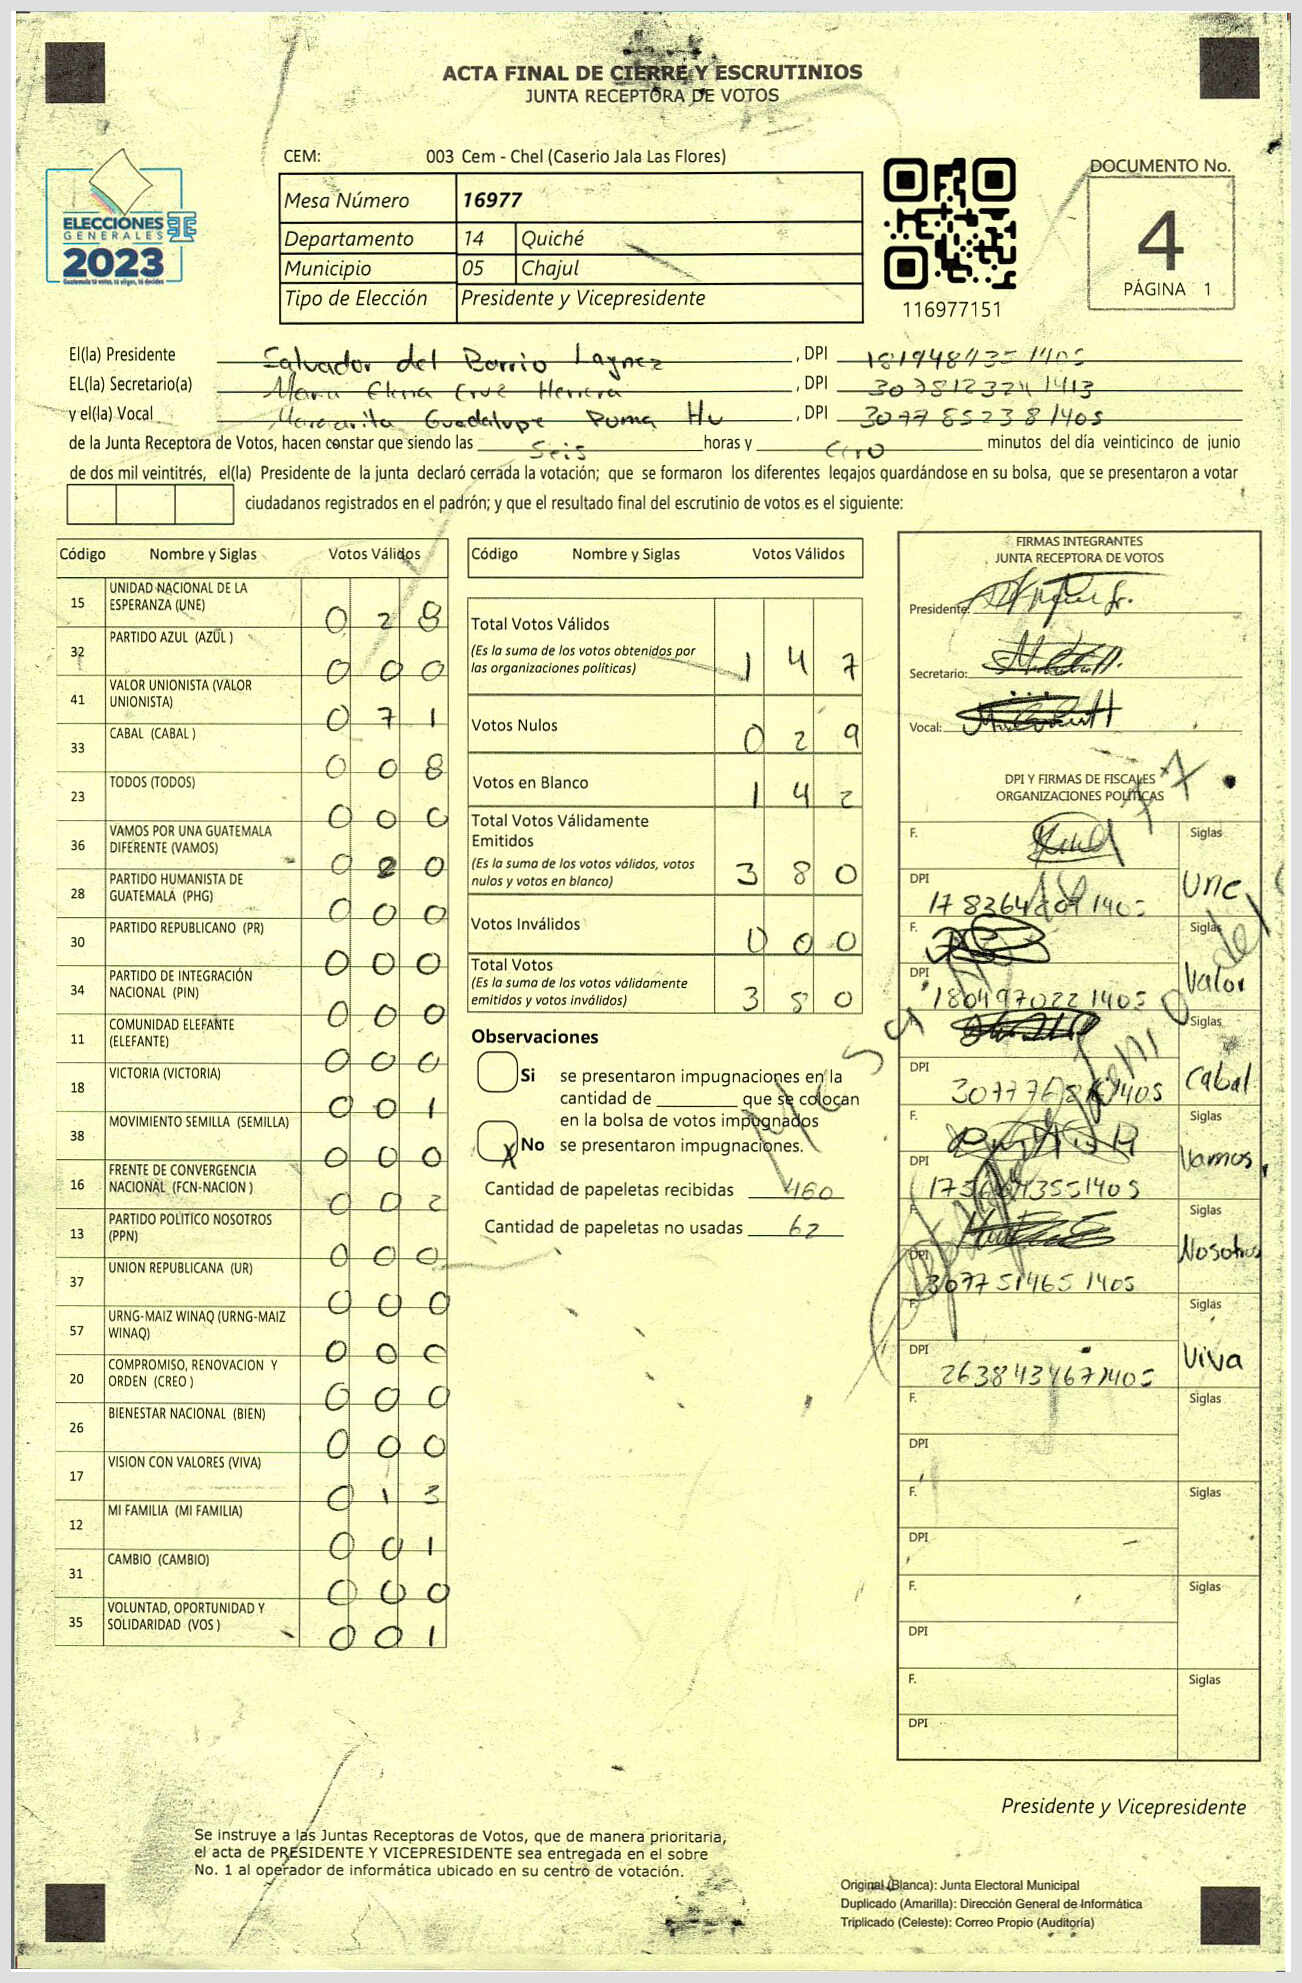 ACTA FINAL DE CIERRE Y ESCRUTINIOS
JUNTA RECEPTORA DE VOTOS
CEM: 003 Cem - Chel (Caserio Jala Las Flores)
ELECCIONES
GENERALES
2023
Mesa Número 16977
Departamento 14 Quiché
Municipio 05 Chajul
Tipo de Elección Presidente y Vicepresidente
116977151
DOCUMENTO No.
4
PÁGINA 1
El(la) Presidente Salvador del Barrio Laynez, DPI 181948435 1405
EL(la) Secretario(a) Maria Elena Cruz Herrera, DPI 1413
y el(la) Vocal Margarita Guadalupe Puma Hu, DPI 3077 85238 1405
de la Junta Receptora de Votos, hacen constar que siendo las Seis horas y Cero minutos del día veinticinco de junio
de dos mil veintitrés, el(la) Presidente de la junta declaró cerrada la votación; que se formaron los diferentes legajos guardándose en su bolsa, que se presentaron a votar
ciudadanos registrados en el padrón; y que el resultado final del escrutinio de votos es el siguiente:
Código Nombre y Siglas Votos Válidos
15 UNIDAD NACIONAL DE LA ESPERANZA (UNE) 0 2 8
32 PARTIDO AZUL (AZUL ) 0 0 0
41 VALOR UNIONISTA (VALOR UNIONISTA) 0 7 1
33 CABAL (CABAL ) 0 0 8
23 TODOS (TODOS) 0 0 0
36 VAMOS POR UNA GUATEMALA DIFERENTE (VAMOS) 0 2 0
28 PARTIDO HUMANISTA DE GUATEMALA (PHG) 0 0 0
30 PARTIDO REPUBLICANO (PR) 0 0 0
34 PARTIDO DE INTEGRACIÓN NACIONAL (PIN) 0 0 0
11 COMUNIDAD ELEFANTE (ELEFANTE) 0 0 0
18 VICTORIA (VICTORIA) 0 0 1
38 MOVIMIENTO SEMILLA (SEMILLA) 0 0 0
16 FRENTE DE CONVERGENCIA NACIONAL (FCN-NACION ) 0 0 2
13 PARTIDO POLITICO NOSOTROS (PPN) 0 0 0
37 UNION REPUBLICANA (UR) 0 0 0
57 URNG-MAIZ WINAQ (URNG-MAIZ WINAQ) 0 0 0
20 COMPROMISO, RENOVACION Y ORDEN (CREO ) 0 0 0
26 BIENESTAR NACIONAL (BIEN) 0 0 0
17 VISION CON VALORES (VIVA) 0 1 3
12 MI FAMILIA (MI FAMILIA) 0 0 1
31 CAMBIO (CAMBIO) 0 0 0
35 VOLUNTAD, OPORTUNIDAD Y SOLIDARIDAD (VOS ) 0 0 1
Código Nombre y Siglas Votos Válidos
Total Votos Válidos 1 4 7
(Es la suma de los votos obtenidos por
las organizaciones políticas)
Votos Nulos 0 2 9
Votos en Blanco 1 4 2
Total Votos Válidamente
Emitidos 3 8 0
(Es la suma de los votos válidos, votos
nulos y votos en blanco)
Votos Inválidos 0 0 0
Total Votos 3 8 0
(Es la suma de los votos válidamente
emitidos y votos inválidos)
Observaciones
Si se presentaron impugnaciones en la
cantidad de que se colocan
en la bolsa de votos impugnados
X No se presentaron impugnaciones.
Cantidad de papeletas recibidas 460
Cantidad de papeletas no usadas 62
FIRMAS INTEGRANTES
JUNTA RECEPTORA DE VOTOS
Presidente:
Secretario:
Vocal:
DPI Y FIRMAS DE FISCALES
ORGANIZACIONES POLÍTICAS
F. Siglas
DPI 1405 Une
F. Siglas
DPI 180497022 1405 Valor
F. Siglas
DPI 1405 Cabal
F. Siglas
DPI 1405 Vamos
F. Siglas
DPI 307751465 1405 Nosotros
F. Siglas
DPI 263843467 1405 Viva
F. Siglas
DPI
F. Siglas
DPI
F. Siglas
DPI
F. Siglas
DPI
Mesa
Presidente y Vicepresidente
Se instruye a las Juntas Receptoras de Votos, que de manera prioritaria,
el acta de PRESIDENTE Y VICEPRESIDENTE sea entregada en el sobre
No. 1 al operador de informática ubicado en su centro de votación.
Original (Blanca): Junta Electoral Municipal
Duplicado (Amarilla): Dirección General de Informática
Triplicado (Celeste): Correo Propio (Auditoría)